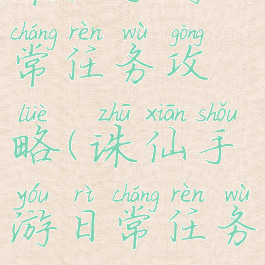 cháng rèn wù gōng
常任务攻
lüè zhū xiān shǒu
略(诛仙手
yóu rì cháng rèn wù
游日常任务